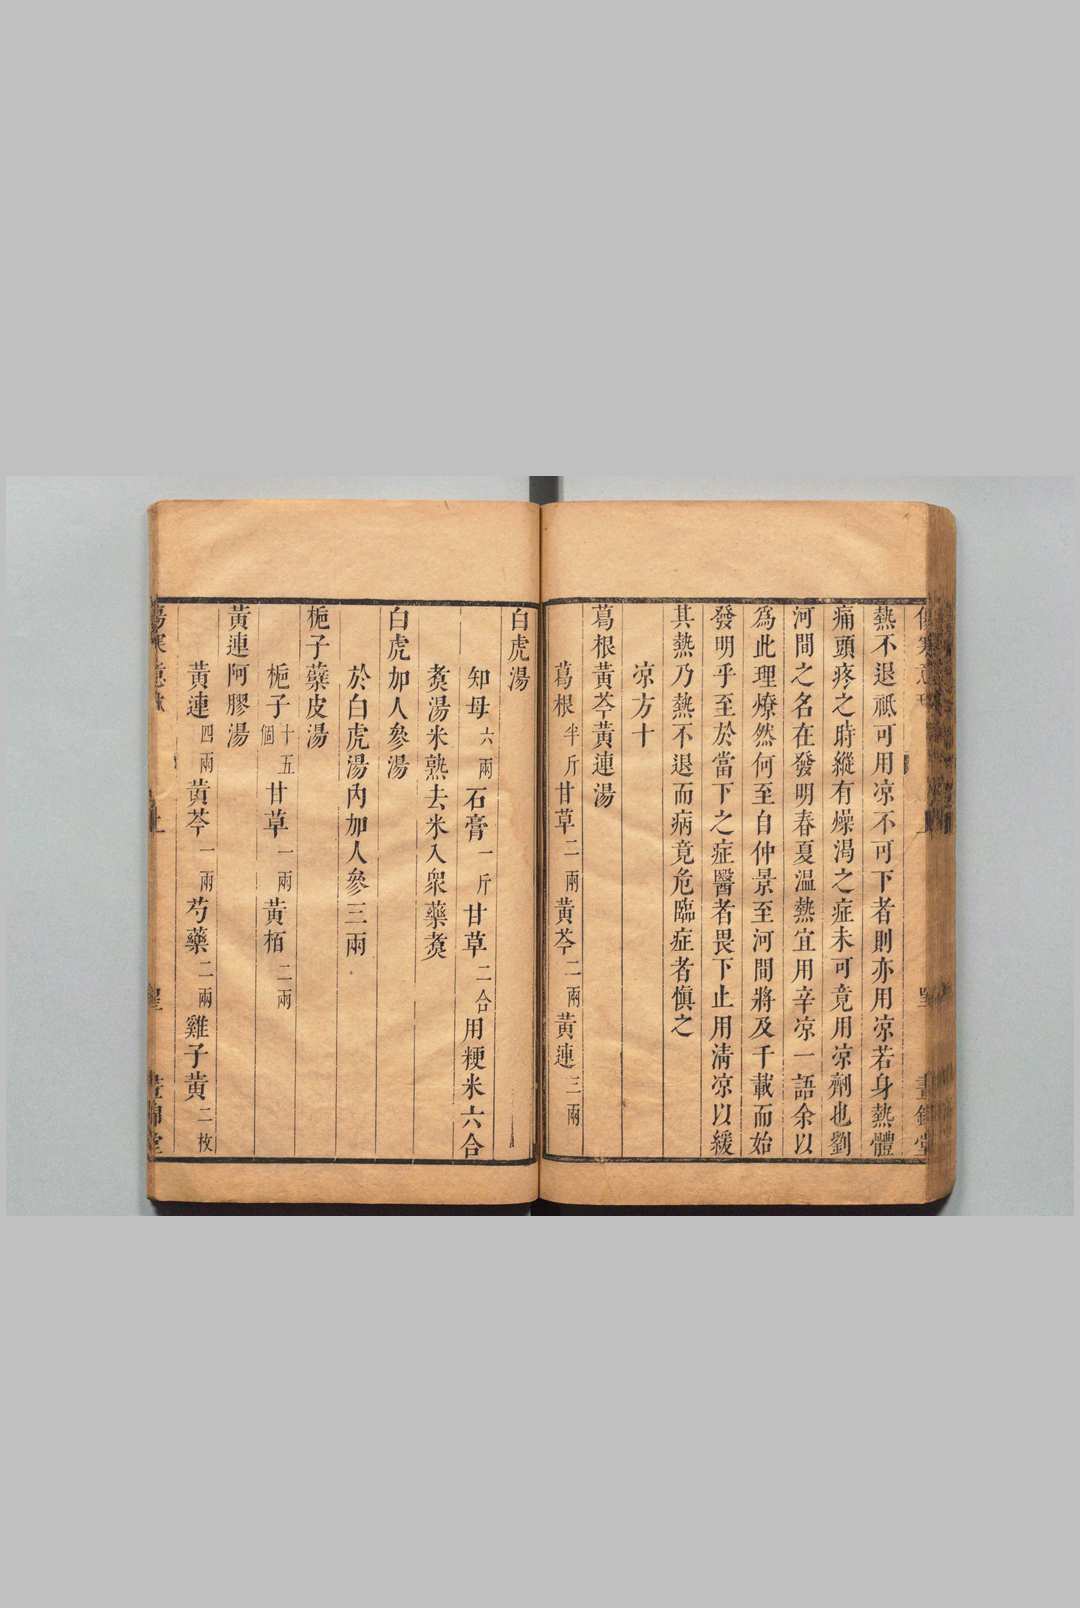 熱不退祗可用凉不可下者則亦用凉若身熱體
痛頭疼之時縱有燥渴之症未可竟用凉劑也劉
河間之名在發明春夏温熱宜用辛凉一語余以
爲此理燎然何至自仲景至河間將及千載而始
發明乎至於當下之症醫者畏下止用清凉以緩
其熱乃熱不退而病竟危臨症者慎之
凉方十
葛根黃芩黃連湯
葛根半斤甘草二兩黃芩二兩黃連三兩
白虎湯
知母六兩石膏一斤甘草二合用粳米六合
煑湯米熟去米入衆藥煑
白虎加人參湯
於白虎湯內加人參三兩
梔子蘗皮湯
梔子十五個甘草一兩黃栢二兩
黃連阿膠湯
黃連四兩黃芩一兩芍藥二兩雞子黃二枚